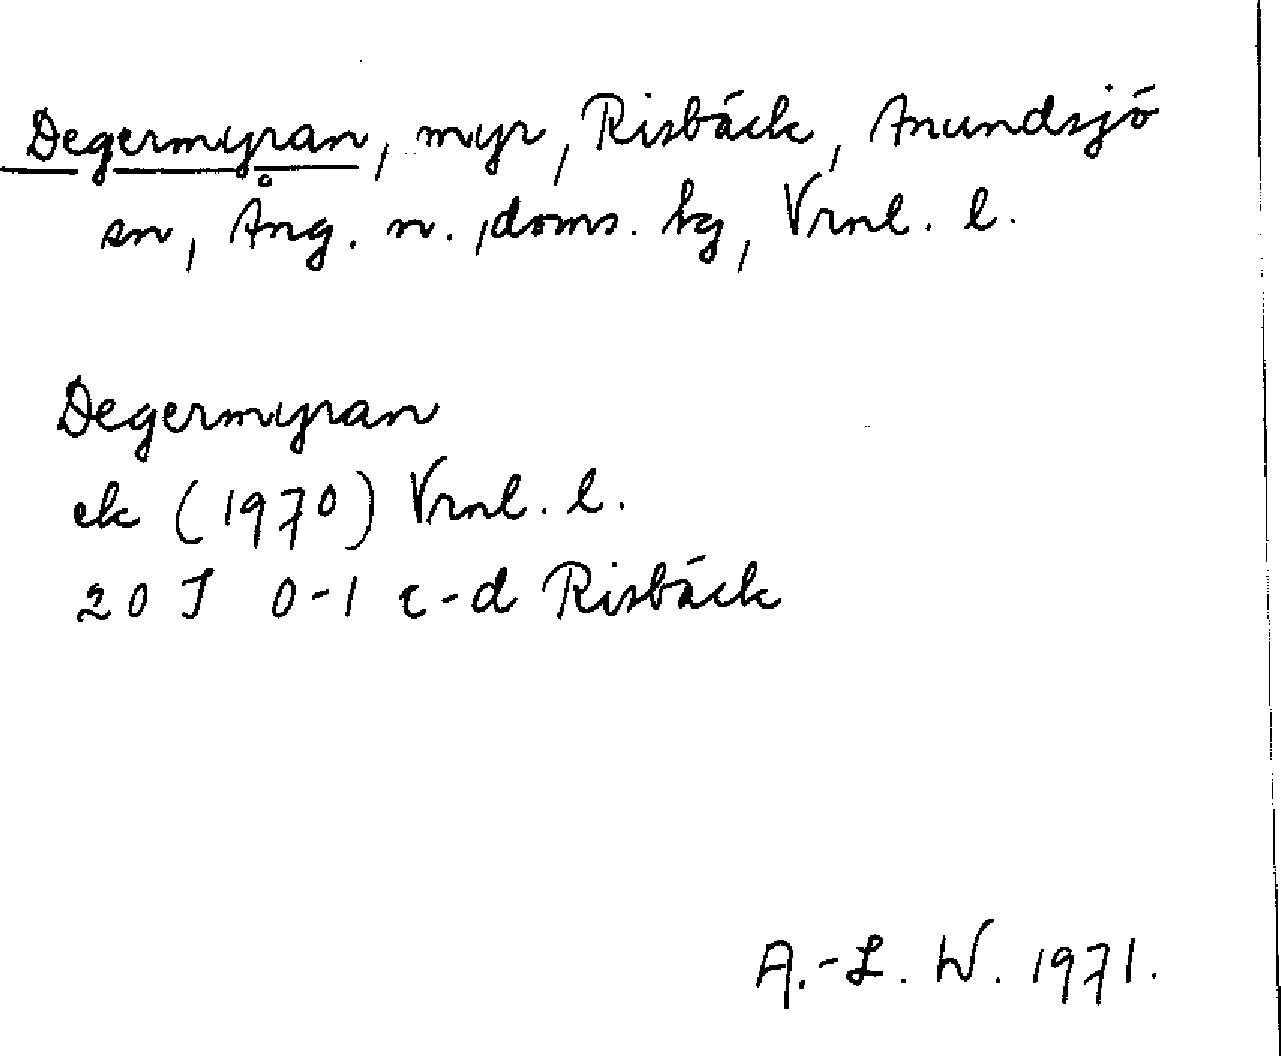 Degermyran, myr, Risbäck, Anundsjö
sn, Ång. n. doms. kg, Vrnl. l.
Degermyran
ek (1970) Vrnl. l.
20 J 0-1 c-d Risbäck
A.-L. W. 1971.